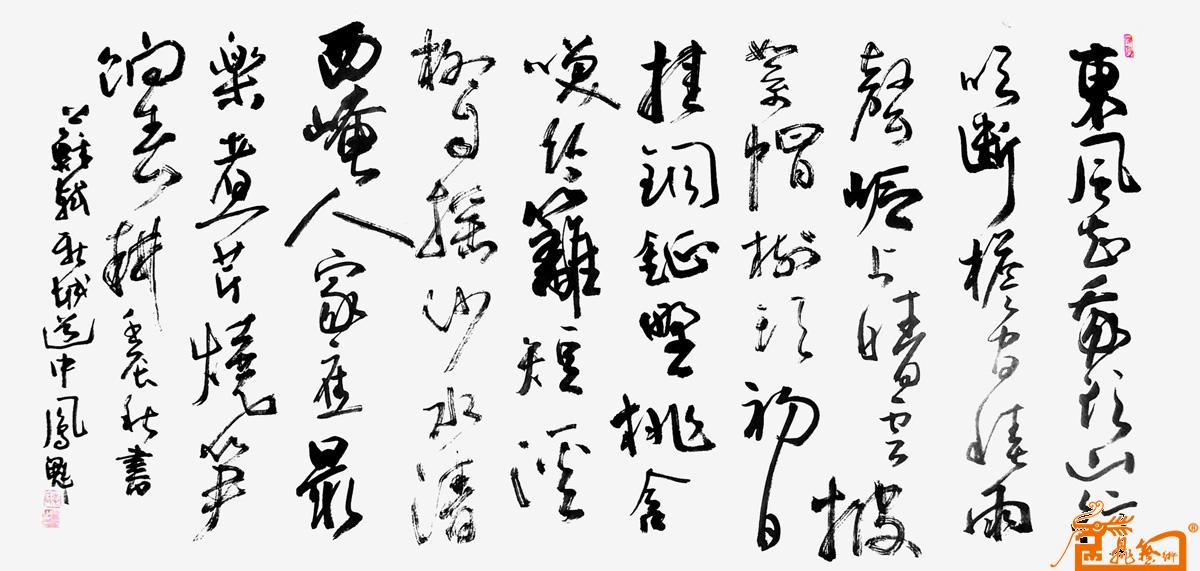 東風知我欲山行
吹斷檐間積雨
聲嶺上晴雲披
絮帽樹頭初日
挂銅鉦野桃含
咲竹籬短溪
柳自搖沙水清
西崦人家應最
樂煮芹燒筍
餉春耕 壬辰秋書
蘇軾新城道中 鳳魁